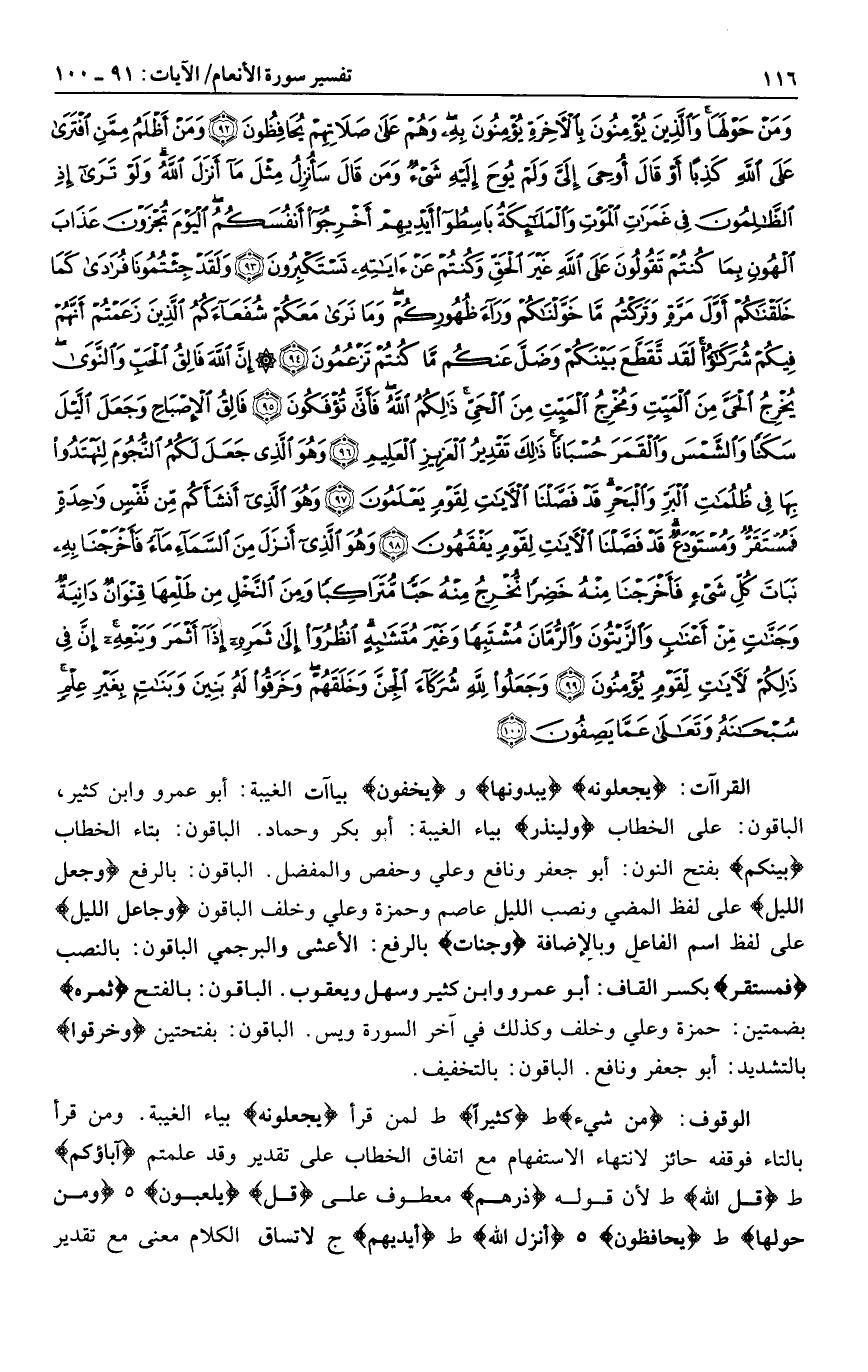 ١١٦ تفسير سورة الأنعام/ الآيات: ٩١ ـ ١٠٠
وَمَنْ حَوْلَهَا وَالَّذِينَ يُؤْمِنُونَ بِالْآخِرَةِ يُؤْمِنُونَ بِهِ وَهُمْ عَلَى صَلَاتِهِمْ يُحَافِظُونَ ﴿٩٢﴾ وَمَنْ أَظْلَمُ مِمَّنِ افْتَرَى
عَلَى اللَّهِ كَذِبًا أَوْ قَالَ أُوحِيَ إِلَيَّ وَلَمْ يُوحَ إِلَيْهِ شَيْءٌ وَمَن قَالَ سَأُنزِلُ مِثْلَ مَا أَنزَلَ اللَّهُ وَلَوْ تَرَى إِذِ
الظَّالِمُونَ فِي غَمَرَاتِ الْمَوْتِ وَالْمَلَائِكَةُ بَاسِطُوا أَيْدِيهِمْ أَخْرِجُوا أَنفُسَكُمُ الْيَوْمَ تُجْزَوْنَ عَذَابَ
الْهُونِ بِمَا كُنتُمْ تَقُولُونَ عَلَى اللَّهِ غَيْرَ الْحَقِّ وَكُنتُمْ عَنْ ءَايَاتِهِ تَسْتَكْبِرُونَ ﴿٩٣﴾ وَلَقَدْ جِئْتُمُونَا فُرَادَى كَمَا
خَلَقْنَاكُمْ أَوَّلَ مَرَّةٍ وَتَرَكْتُم مَّا خَوَّلْنَاكُمْ وَرَاءَ ظُهُورِكُمْ وَمَا نَرَى مَعَكُمْ شُفَعَاءَكُمُ الَّذِينَ زَعَمْتُمْ أَنَّهُمْ
فِيكُمْ شُرَكَاؤُا لَقَد تَّقَطَّعَ بَيْنَكُمْ وَضَلَّ عَنكُم مَّا كُنتُمْ تَزْعُمُونَ ﴿٩٤﴾ ۞ إِنَّ اللَّهَ فَالِقُ الْحَبِّ وَالنَّوَى
يُخْرِجُ الْحَيَّ مِنَ الْمَيِّتِ وَمُخْرِجُ الْمَيِّتِ مِنَ الْحَيِّ ذَالِكُمُ اللَّهُ فَأَنَّى تُؤْفَكُونَ ﴿٩٥﴾ فَالِقُ الْإِصْبَاحِ وَجَعَلَ الَّيْلَ
سَكَنًا وَالشَّمْسَ وَالْقَمَرَ حُسْبَانًا ذَلِكَ تَقْدِيرُ الْعَزِيزِ الْعَلِيمِ ﴿٩٦﴾ وَهُوَ الَّذِي جَعَلَ لَكُمُ النُّجُومَ لِتَهْتَدُوا
بِهَا فِي ظُلُمَاتِ الْبَرِّ وَالْبَحْرِ قَدْ فَصَّلْنَا الْآيَاتِ لِقَوْمٍ يَعْلَمُونَ ﴿٩٧﴾ وَهُوَ الَّذِي أَنشَأَكُم مِّن نَّفْسٍ وَاحِدَةٍ
فَمُسْتَقَرٌّ وَمُسْتَوْدَعٌ قَدْ فَصَّلْنَا الْآيَاتِ لِقَوْمٍ يَفْقَهُونَ ﴿٩٨﴾ وَهُوَ الَّذِي أَنزَلَ مِنَ السَّمَاءِ مَاءً فَأَخْرَجْنَا بِهِ
نَبَاتَ كُلِّ شَيْءٍ فَأَخْرَجْنَا مِنْهُ خَضِرًا نُّخْرِجُ مِنْهُ حَبًّا مُّتَرَاكِبًا وَمِنَ النَّخْلِ مِن طَلْعِهَا قِنْوَانٌ دَانِيَةٌ
وَجَنَّاتٍ مِّنْ أَعْنَابٍ وَالزَّيْتُونَ وَالرُّمَّانَ مُشْتَبِهًا وَغَيْرَ مُتَشَابِهٍ انظُرُوا إِلَى ثَمَرِهِ إِذَا أَثْمَرَ وَيَنْعِهِ إِنَّ فِي
ذَالِكُمْ لَآيَاتٍ لِّقَوْمٍ يُؤْمِنُونَ ﴿٩٩﴾ وَجَعَلُوا لِلَّهِ شُرَكَاءَ الْجِنَّ وَخَلَقَهُمْ وَخَرَقُوا لَهُ بَنِينَ وَبَنَاتٍ بِغَيْرِ عِلْمٍ
سُبْحَانَهُ وَتَعَالَى عَمَّا يَصِفُونَ ﴿١٠٠﴾
القراآت: ﴿يجعلونه﴾ ﴿يبدونها﴾ و ﴿يخفون﴾ بياآت الغيبة: أبو عمرو وابن كثير،
الباقون: على الخطاب ﴿ولينذر﴾ بياء الغيبة: أبو بكر وحماد. الباقون: بتاء الخطاب
﴿بينكم﴾ بفتح النون: أبو جعفر ونافع وعلي وحفص والمفضل. الباقون: بالرفع ﴿وجعل
الليل﴾ على لفظ المضي ونصب الليل عاصم وحمزة وعلي وخلف الباقون ﴿وجاعل الليل﴾
على لفظ اسم الفاعل وبالإضافة ﴿وجنات﴾ بالرفع: الأعشى والبرجمي الباقون: بالنصب
﴿فمستقر﴾ بكسر القاف: أبو عمرو وابن كثير وسهل ويعقوب. الباقون: بالفتح ﴿ثمره﴾
بضمتين: حمزة وعلي وخلف وكذلك في آخر السورة ويس. الباقون: بفتحتين ﴿وخرقوا﴾
بالتشديد: أبو جعفر ونافع. الباقون: بالتخفيف.
الوقوف: ﴿من شيء﴾ط ﴿كثيراً﴾ ط لمن قرأ ﴿يجعلونه﴾ بياء الغيبة. ومن قرأ
بالتاء فوقفه حائز لانتهاء الاستفهام مع اتفاق الخطاب على تقدير وقد علمتم ﴿آباؤكم﴾
ط ﴿قل الله﴾ ط لأن قوله ﴿ذرهم﴾ معطوف على ﴿قل﴾ ﴿يلعبون﴾ ٥ ﴿ومن
حولها﴾ ط ﴿يحافظون﴾ ٥ ﴿أنزل الله﴾ ط ﴿أيديهم﴾ ج لاتساق الكلام معنى مع تقدير